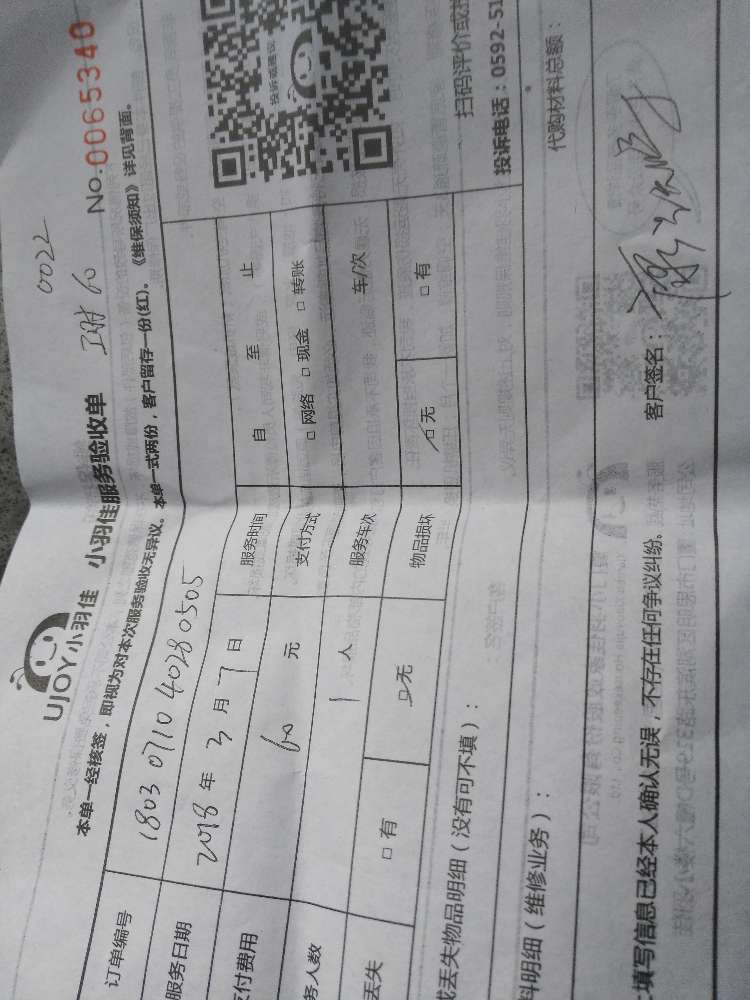 0022
UJOY小羽佳 小羽佳服务验收单 No.0065340
本单一经核签，即视为对本次服务验收无异议。本单一式两份，客户留存一份(红)。《维保须知》详见背面。
订单编号 1803 0710 4028 0505
服务日期 2018 年 3 月 7 日 服务时间 自 至 止
付费用 60 元 支付方式 □ 网络 □ 现金 □ 转账
务人数 1 人 服务车次 车/次
丢失 □ 有 □ 无 物品损坏 □ 无 □ 有
丢失物品明细（没有可不填）：
料明细（维修业务）：
投诉或建议
扫码评价或投
投诉电话：0592-51
代购材料总额：
填写信息已经本人确认无误，不存在任何争议纠纷。 客户签名：